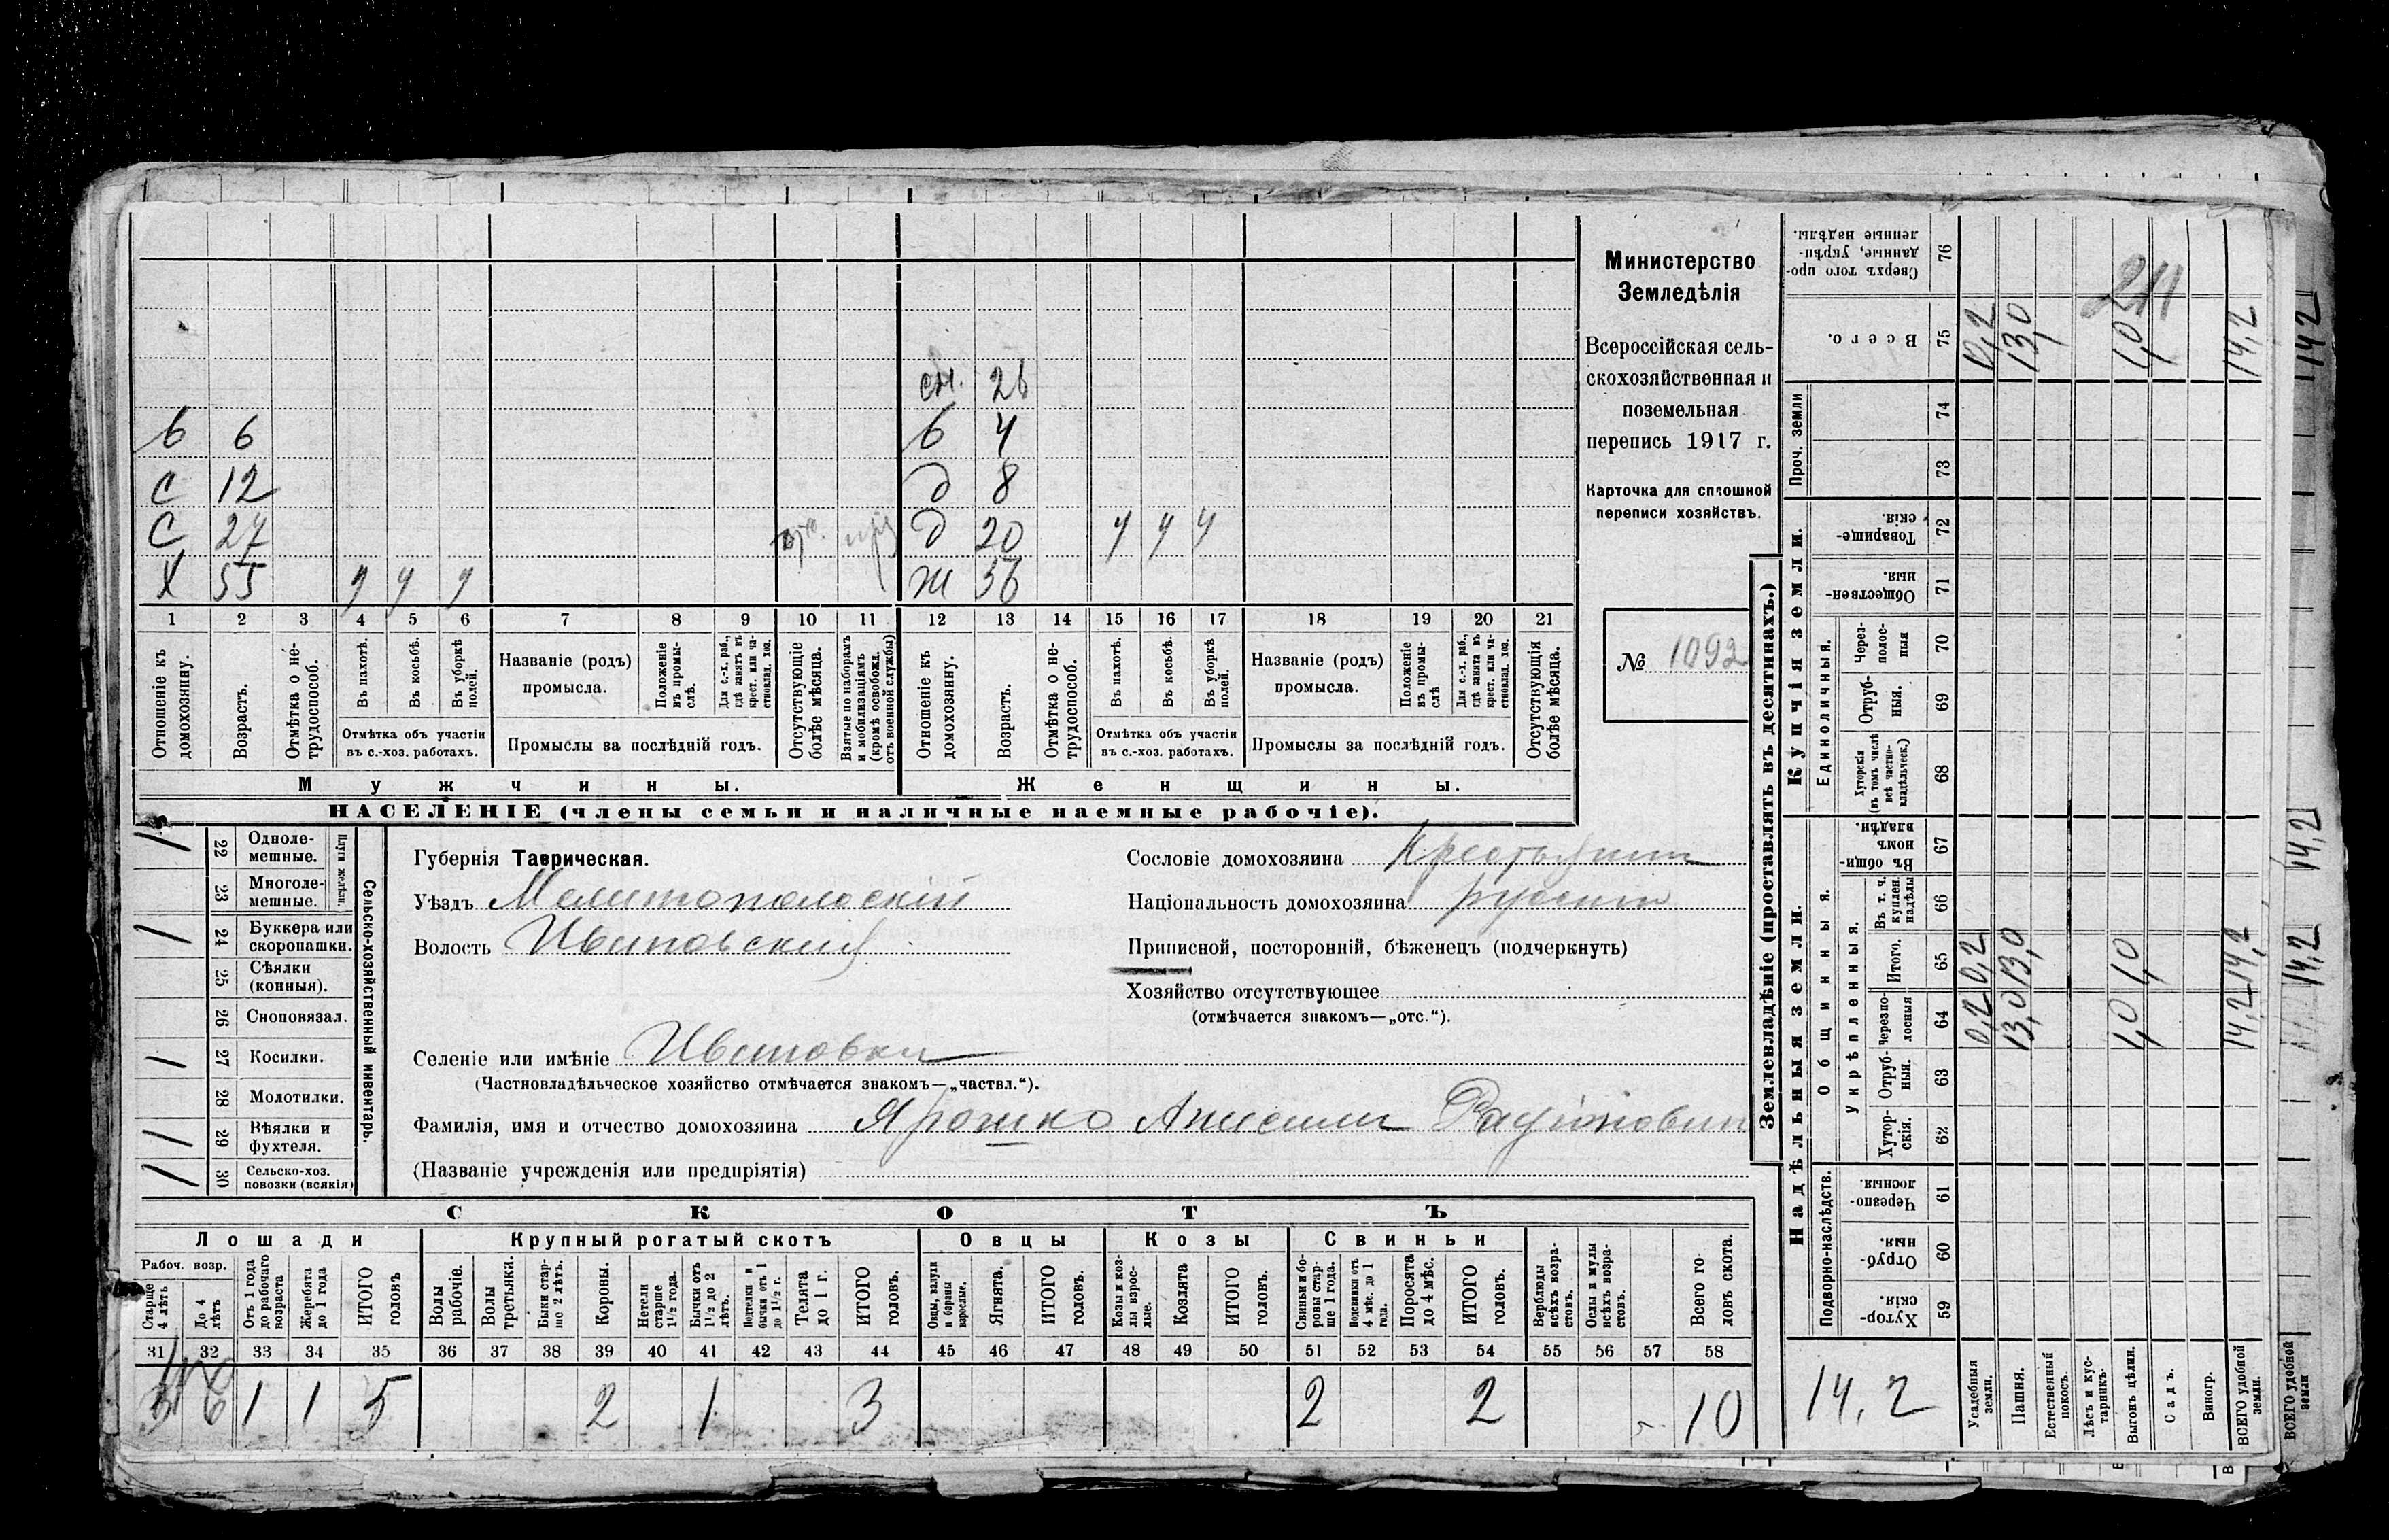 Министерство
Земледѣлія
Всероссійская сель-
скохозяйственная и
поземельная
перепись 1917 г.
Карточка для сплошной
переписи хозяйствъ.
№ 1092
сн. 26
6 6 4
С 12 д 8
С 27 отс. д 20 ч ч ч
Х 55 ж 56
1 2 3 4 5 6 7 8 9 10 11 12 13 14 15 16 17 18 19 20 21
Отношеніе къ домохозяину.
Возрастъ.
Отмѣтка о не-трудоспособ.
Въ пахотѣ.
Въ косьбѣ.
Въ уборкѣ полей.
Отмѣтка объ участіи
въ с.-хоз. работахъ.
Названіе (родъ)
промысла.
Положеніе въ промы-слѣ.
Для с.-х. раб., гдѣ занятъ въ крест. или ча-стновлад. хоз.
Промыслы за послѣдній годъ.
Отсутствующіе болѣе мѣсяца.
Взятые по наборамъ и мобилизаціямъ (кромѣ освобожд. отъ военной службы)
Отношеніе къ домохозяину.
Возрастъ.
Отмѣтка о не-трудоспособ.
Въ пахотѣ.
Въ косьбѣ.
Въ уборкѣ полей.
Отмѣтка объ участіи
въ с.-хоз. работахъ.
Названіе (родъ)
промысла.
Положеніе въ промы-слѣ
Для с.-х. раб., гдѣ занята въ крест. или ча-стновлад. хоз.
Промыслы за послѣдній годъ.
Отсутствующія болѣе мѣсяца.
Мужчины.
Женщины.
НАСЕЛЕНІЕ (члены семьи и наличные наемные рабочіе).
Сельско-хозяйственный инвентарь.
Плуги желѣзн.
1 22 Однолемешные.
23 Многолемешные.
1 24 Буккера или скоропашки.
25 Сѣялки (конныя).
26 Сноповязал.
1 27 Косилки.
28 Молотилки.
11 29 Вѣялки и фухтеля.
11 30 Сельско-хоз. повозки (всякія)
Губернія Таврическая.
Уѣздъ Мелитопольскій
Волость Ивановская
Сословіе домохозяина Крестьянин
Національность домохозяина русский
Приписной, посторонній, бѣженецъ (подчеркнуть)
Хозяйство отсутствующее
(отмѣчается знакомъ—„отс.“).
Селеніе или имѣніе Ивановка
(Частновладѣльческое хозяйство отмѣчается знакомъ—„частвл.“).
Фамилія, имя и отчество домохозяина Ярошко Анисим Радіонович
(Названіе учрежденія или предпріятія)
СКОТЪ
Лошади Крупный рогатый скотъ Овцы Козы Свиньи
Рабоч. возр.
Старше 4 лѣтъ
До 4 лѣтъ
Отъ 1 года до рабочаго возраста
Жеребята до 1 года
ИТОГО головъ
Волы рабочіе.
Волы третьяки.
Быки стар-ше 2 лѣтъ.
Коровы.
Нетели старше 1½ года.
Бычки отъ 1½ до 2 лѣтъ.
Подтелки и бычки отъ 1 до 1½ г.
Телята до 1 г.
ИТОГО головъ.
Овцы, валухи и бараны взрослые.
Ягнята.
ИТОГО головъ.
Козы и коз-лы взрос-лые.
Козлята
ИТОГО головъ.
Свиньи и бо-ровы стар-ше 1 года.
Подсвинки отъ 4 мѣс. до 1 года.
Поросята до 4 мѣс.
ИТОГО головъ.
Верблюды всѣхъ возра-стовъ.
Ослы и мулы всѣхъ возра-стовъ.
Всего го-ловъ скота.
31 32 33 34 35 36 37 38 39 40 41 42 43 44 45 46 47 48 49 50 51 52 53 54 55 56 57 58
3 1 1 5 2 1 3 2 2 10
Землевладѣніе (проставлять въ десятинахъ.)
Надѣльныя земли.
Купчія земли.
Проч. земли
Подворно-наслѣдств.
Общинныя.
Укрѣпленныя.
Единоличныя.
Сверхъ того про-данные, укрѣп-ленные надѣлы. 76
Всего. 75 0,2 13,0 1,0 14,2
74
73
Товарище-скія. 72
Обществен-ныя. 71
Через-полос-ныя 70
Отруб-ныя. 69
Хуторскія (въ томъ числѣ всѣ частно-владѣльческ.) 68
Въ общин-номъ владѣн. 67
Въ т. ч. куплен. надѣлы 66
Итого. 65 0,2 13,0 1,0 14,2
Черезпо-лосныя 64 0,2 13,0 1,0 14,2
Отруб-ныя. 63
Хутор-скія. 62
Черезпо-лосныя. 61
Отруб-ныя. 60
Хутор-скія 59
14,2
Усадебныя земли.
Пашня.
Естественный покосъ.
Лѣсъ и кус-тарникъ.
Выгонъ цѣлин.
Садъ.
Виногр.
ВСЕГО удобной земли.
ВСЕГО удобной земли
142
14,2
14,2